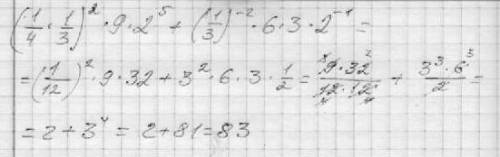 (1/4 · 1/3)² · 9 · 2⁵ + (1/3)⁻² · 6 · 3 · 2⁻¹ =
= (1/12)² · 9 · 32 + 3² · 6 · 3 · 1/2 = 9 · 32/12 · 12 + 3³ · 6/2 =
= 2 + 3⁴ = 2 + 81 = 83